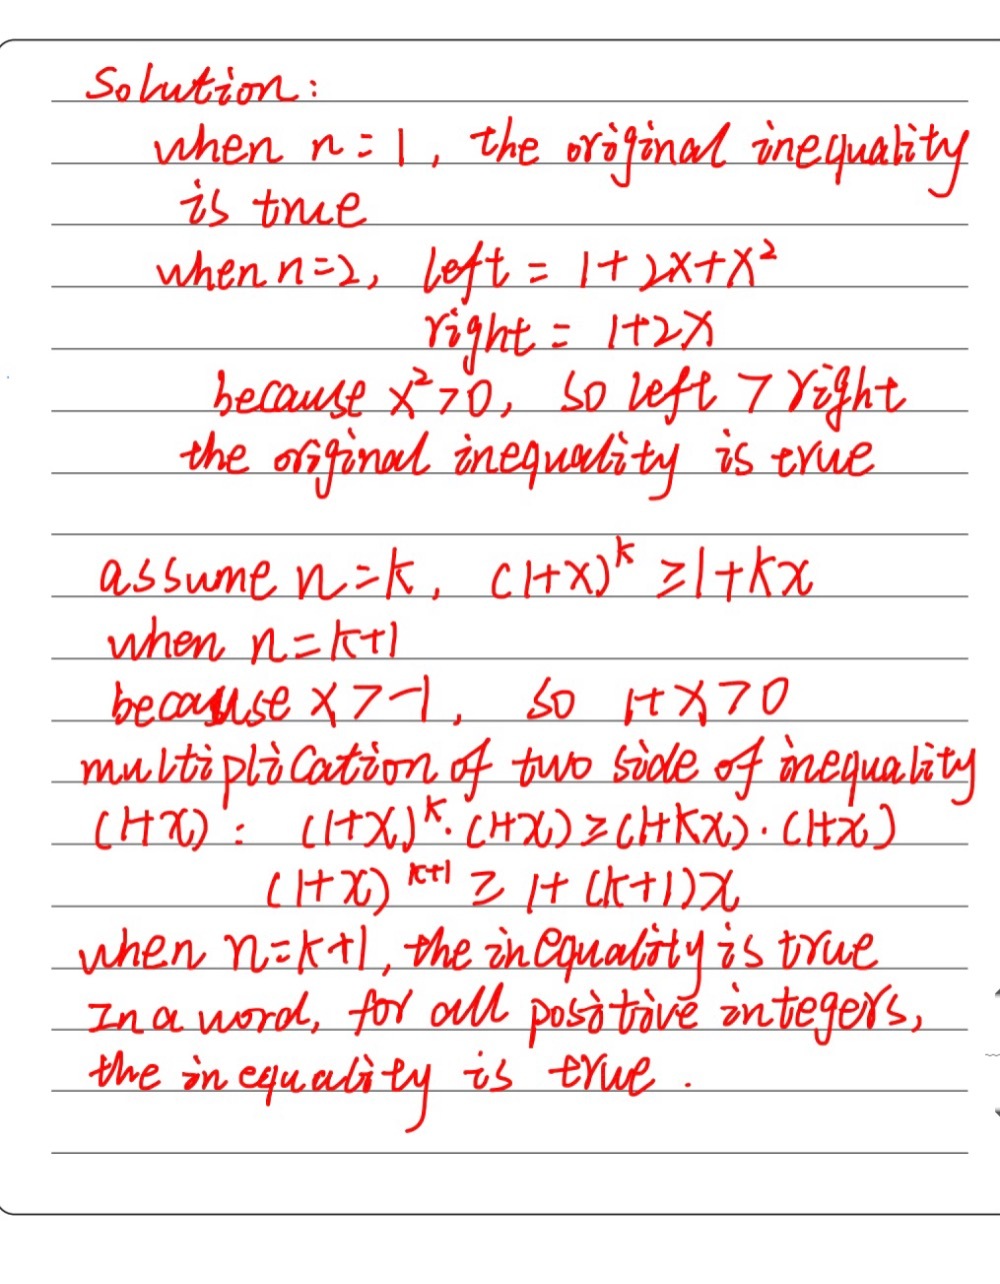 Solution:
when n=1, the original inequality
is true
when n=2, left = 1+2x+x²
right = 1+2x
because x²>0, so left > right
the original inequality is true
assume n=k, (1+x)^k ≥1+kx
when n=k+1
because x>-1, so 1+x>0
multiplication of two side of inequality
(1+x): (1+x)^k·(1+x)≥(1+kx)·(1+x)
(1+x)^k+1 ≥ 1+(k+1)x
when n=k+1, the inequality is true
In a word, for all positive integers,
the inequality is true.